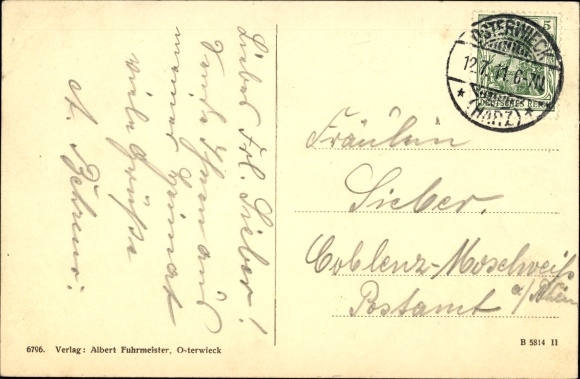 Liebes Frl. Sieber!
Sende Ihnen aus
meiner Heimat
viele Grüße
A. Behrens.
5
OSTERWIECK
12.7.11. 6-7N
DEUTSCHES REICH
* (HARZ) *
Fräulein
Sieber.
Coblenz-Moselweiß
a/Rhein
Postamt
6796. Verlag: Albert Fuhrmeister, Osterwieck
B 5814 II